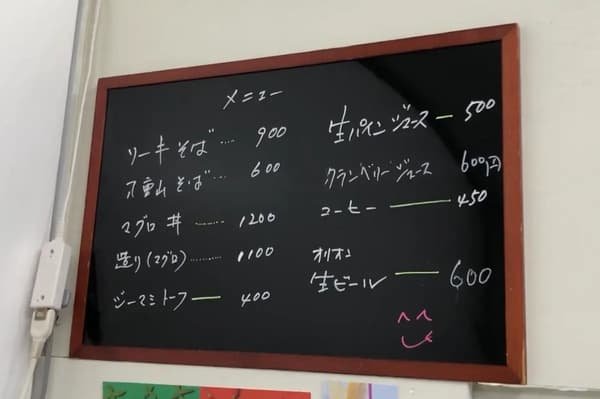 メニュー
ソーキそば.... 900
八重山そば.... 600
マグロ丼 ........ 1200
造り(マグロ)......... 1100
ジーマミトーフ — 400
生パインジュース — 500
クランベリージュース 600円
コーヒー — 450
オリオン
生ビール — 600